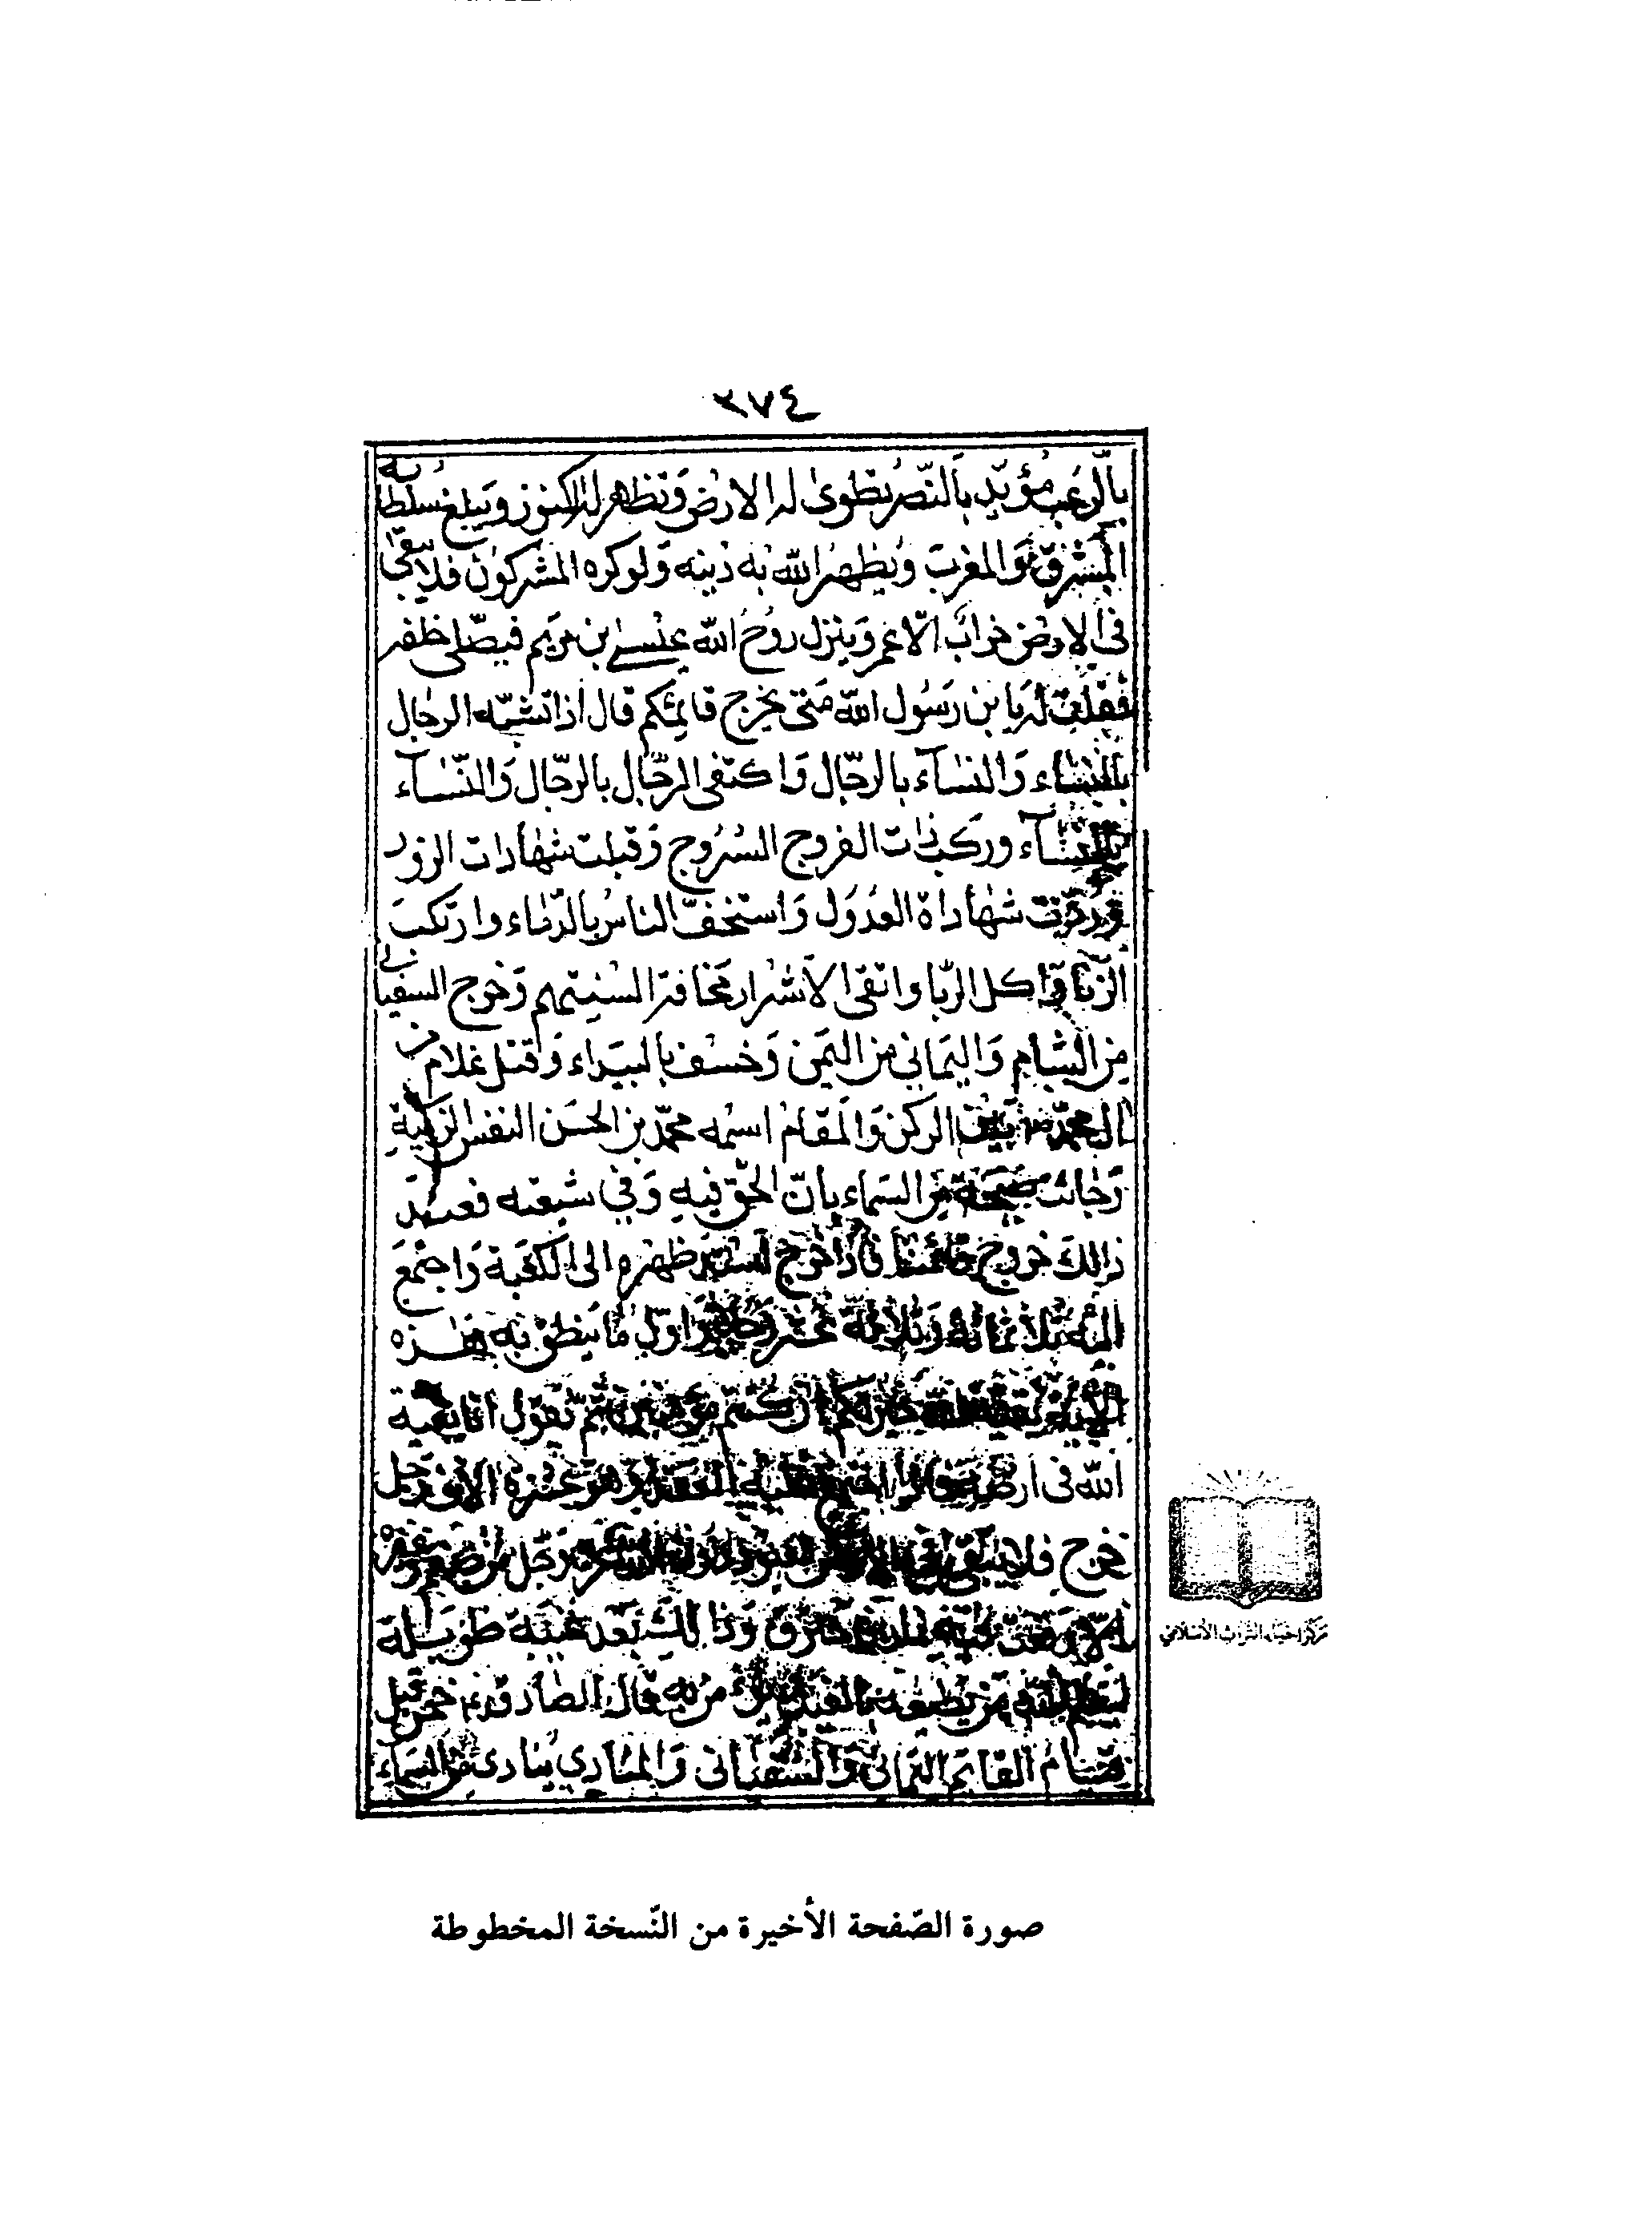 ٣٧٤
بالرّعب مؤيّد بالنّصر تطوى له الارض وتظهر له الكنوز ويبلغ سلطانه
المشرق والمغرب ويظهر الله به دينه ولو كره المشركون فلا يبقى
فى الارض خراب الّا عمر وينزل روح الله عيسى بن مريم فيصلّى خلفه
فقلت له يا بن رسول الله متى يخرج قائمكم قال اذا تشبّه الرجال
بالنساء والنسآء بالرجال واكتفى الرجال بالرجال والنّسآء
بالنسآء وركب ذات الفروج السروج وقبلت شهادات الزور
وردّت شهاداة العدول واستخفّ الناس بالدّماء وارتكب
الزّنا واكل الرّبا واتقى الاشرار مخافة السنتهم وخرج السفيانى
من الشام واليمانى من اليمن وخسف بالبيداء وقتل غلام من
ال محمد بين الركن والمقام اسمه محمّد بن الحسن النفس الزكية
وجائت صيحة من السماء بانّ الحقّ فيه وفي شيعته فعند
ذالك خروج قائمنا فاذا خرج اسند ظهره الى الكعبة واجتمع
اليه ثلاثمائة وثلاثة عشر رجلا اوّل ما ينطق به هذه
الاية بقية الله خير لكم ان كنتم مؤمنين ثمّ يقول انا بقية
الله فى ارضه فاذا اجتمع اليه العقد وهو عشرة الاف رجل
خرج فلا يبقى فى الارض معبود دون الله عزّ وجل من صنم وغيره
الّا وقعت فيه نار فاحترق وذالك بعد غيبة طويلة
ليعلم الله من يطيعه بالغيب ويؤمن به قال الصادق ع خمس قبل
قيام القائم اليمانى والسفيانى والمنادي ينادى من السماء
مركز احياء التراث الاسلامي
صورة الصّفحة الأخيرة من النّسخة المخطوطة